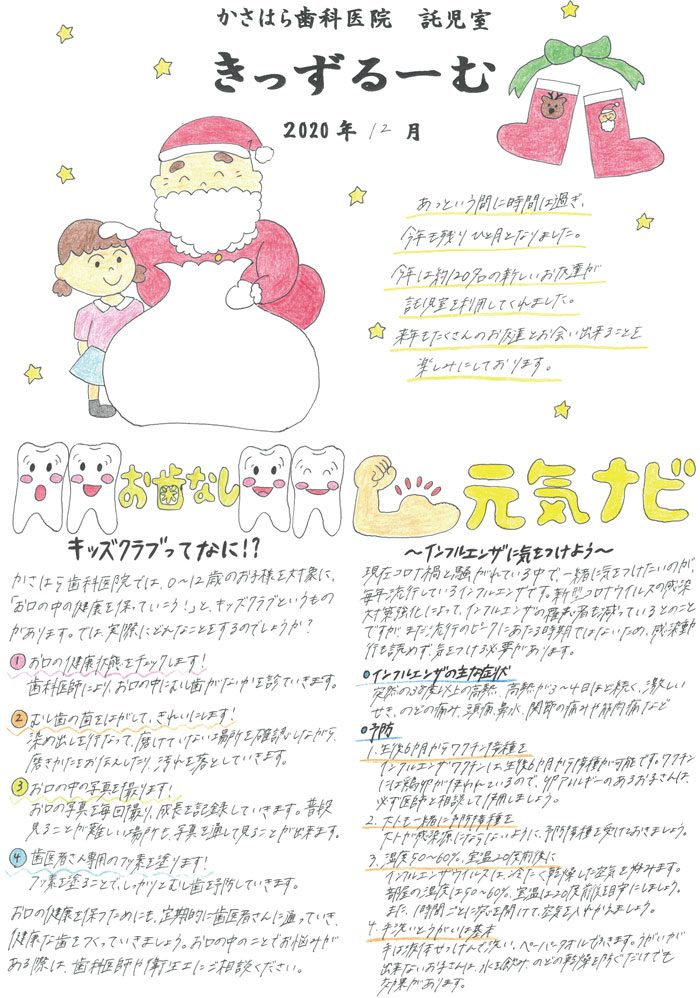 かさはら歯科医院 託児室
きっずるーむ
2020年 12月
あっという間に時間は過ぎ、
今年も残りひと月となりました。
今年は約120名の新しいお友達が
託児室を利用してくれました。
来年もたくさんのお友達とお会い出来ることを
楽しみにしております。
お歯なし
キッズクラブってなに!?
かさはら歯科医院では、0〜12歳のお子様を対象に、
「お口の中の健康を保っていこう!」と、キッズクラブというもの
があります。では、実際にどんなことをするのでしょうか?
1 お口の健康状態をチェックします!
歯科医師により、お口の中にむし歯がないかを診ていきます。
2 むし歯の菌をはがして、きれいにします!
染め出しを行なって、磨けていない場所を確認しながら、
磨きかたをお伝えしたり、汚れを落としていきます。
3 お口の中の写真を撮ります!
お口の写真を毎回撮り、成長を記録していきます。普段
見ることが難しい場所も、写真を通して見ることが出来ます。
4 歯医者さん専用のフッ素を塗ります!
フッ素を塗ることで、しっかりとむし歯を予防していきます。
お口の健康を保つためにも、定期的に歯医者さんに通っていき、
健康な歯をつくっていきましょう。お口の中のことでお悩みが
ある際は、歯科医師や衛生士にご相談ください。
元気ナビ
〜インフルエンザに気をつけよう〜
現在コロナ禍と騒がれている中で、一緒に気をつけたいのが、
毎年流行しているインフルエンザです。新型コロナウイルスの感染
対策強化によって、インフルエンザの罹患者も減っているとのこと
ですが、まだ流行のピークにあたる時期ではないため、感染動
行も読めず、気をつける必要があります。
インフルエンザの主な症状
突然の38度以上の高熱、高熱が3〜4日ほど続く、激しい
せき、のどの痛み、頭痛、鼻水、関節の痛みや筋肉痛など
予防
1. 生後6か月からワクチン接種を
インフルエンザワクチンは、生後6か月から接種が可能です。ワクチン
には鶏卵が使われているので、卵アレルギーのあるお子さんは、
必ず医師と相談して使用しましょう。
2. 大人も一緒に予防接種を
大人が感染源にならないように、予防接種を受けておきましょう。
3. 湿度50〜60%、室温20度前後に
インフルエンザウイルスは、冷たく乾燥した空気を好みます。
部屋の湿度は50〜60%、室温は20度前後を目安にしましょう。
また、1時間ごとに窓を開けて、空気を入れかえましょう。
4. 手洗いとうがいは基本
手は液体せっけんで洗い、ペーパータオルでふきます。うがいが
出来ないお子さんは、水を飲み、のどの乾燥を防ぐだけでも
効果があります。